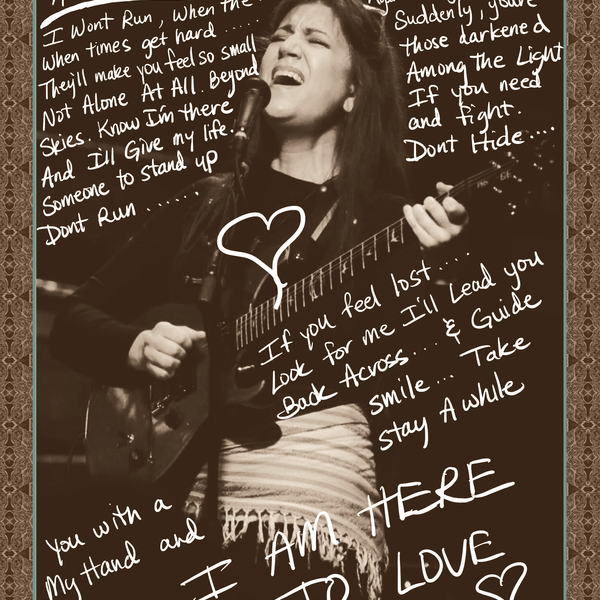 I Wont Run, When the
When times get hard ......
They'll make you feel so small
Not Alone At All. Beyond
Skies. Know I'm there
And I'll Give my life.
Someone to stand up
Dont Run ......
Suddenly, you're
those darkened
Among the Light
If you need
and fight.
Dont Hide ....
If you feel lost.....
Look for me I'll Lead you
Back Across... & Guide
smile... Take
stay A while
You with a
My Hand and
I AM HERE
TO LOVE